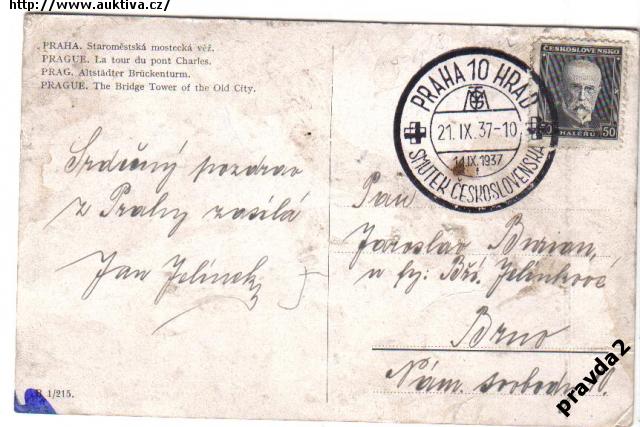 http://www.auktiva.cz/
PRAHA. Staroměstská mostecká věž.
PRAGUE. La tour du pont Charles.
PRAG. Altstädter Brückenturm.
PRAGUE. The Bridge Tower of the Old City.
PRAHA 10 HRAD
21. IX. 37-10
14.IX.1937
SMUTEK ČESKOSLOVENSKA
ČESKOSLOVENSKO
50
HALÉŘŮ
Srdečný pozdrav
z Prahy zasílá
Jan Jelínek
Pan
Jaroslav Burian,
u fy: Bří. Jelínkové
Brno
Nám. svobody
1/215.
pravda2